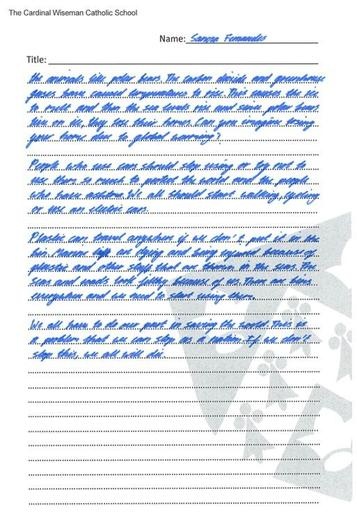 The Cardinal Wiseman Catholic School
Name: Sanora Fernandes
Title:
the animals like polar bears. The carbon dioxide and greenhouse
gases have caused temperatures to rise. This causes the ice
to melt and then the sea levels rise and since polar bears
live on ice, they lose their homes. Can you imagine losing
your home due to global warming?
People who use cars should stop using or try not to
use them so much to protect the world and the people
who have asthma. We all should start walking, cycling
or use an electric car.
Plastic can travel anywhere if we don't put it in the
bin. Marine life is dying and being injured because of
plastic and other stuff that are thrown in the sea. The
seas and roads look filthy because of us. There are bins
everywhere and we need to start using them.
We all have to do our part in saving the world. This is
a problem that we can stop as a nation. If we don't
stop this, we all will die.